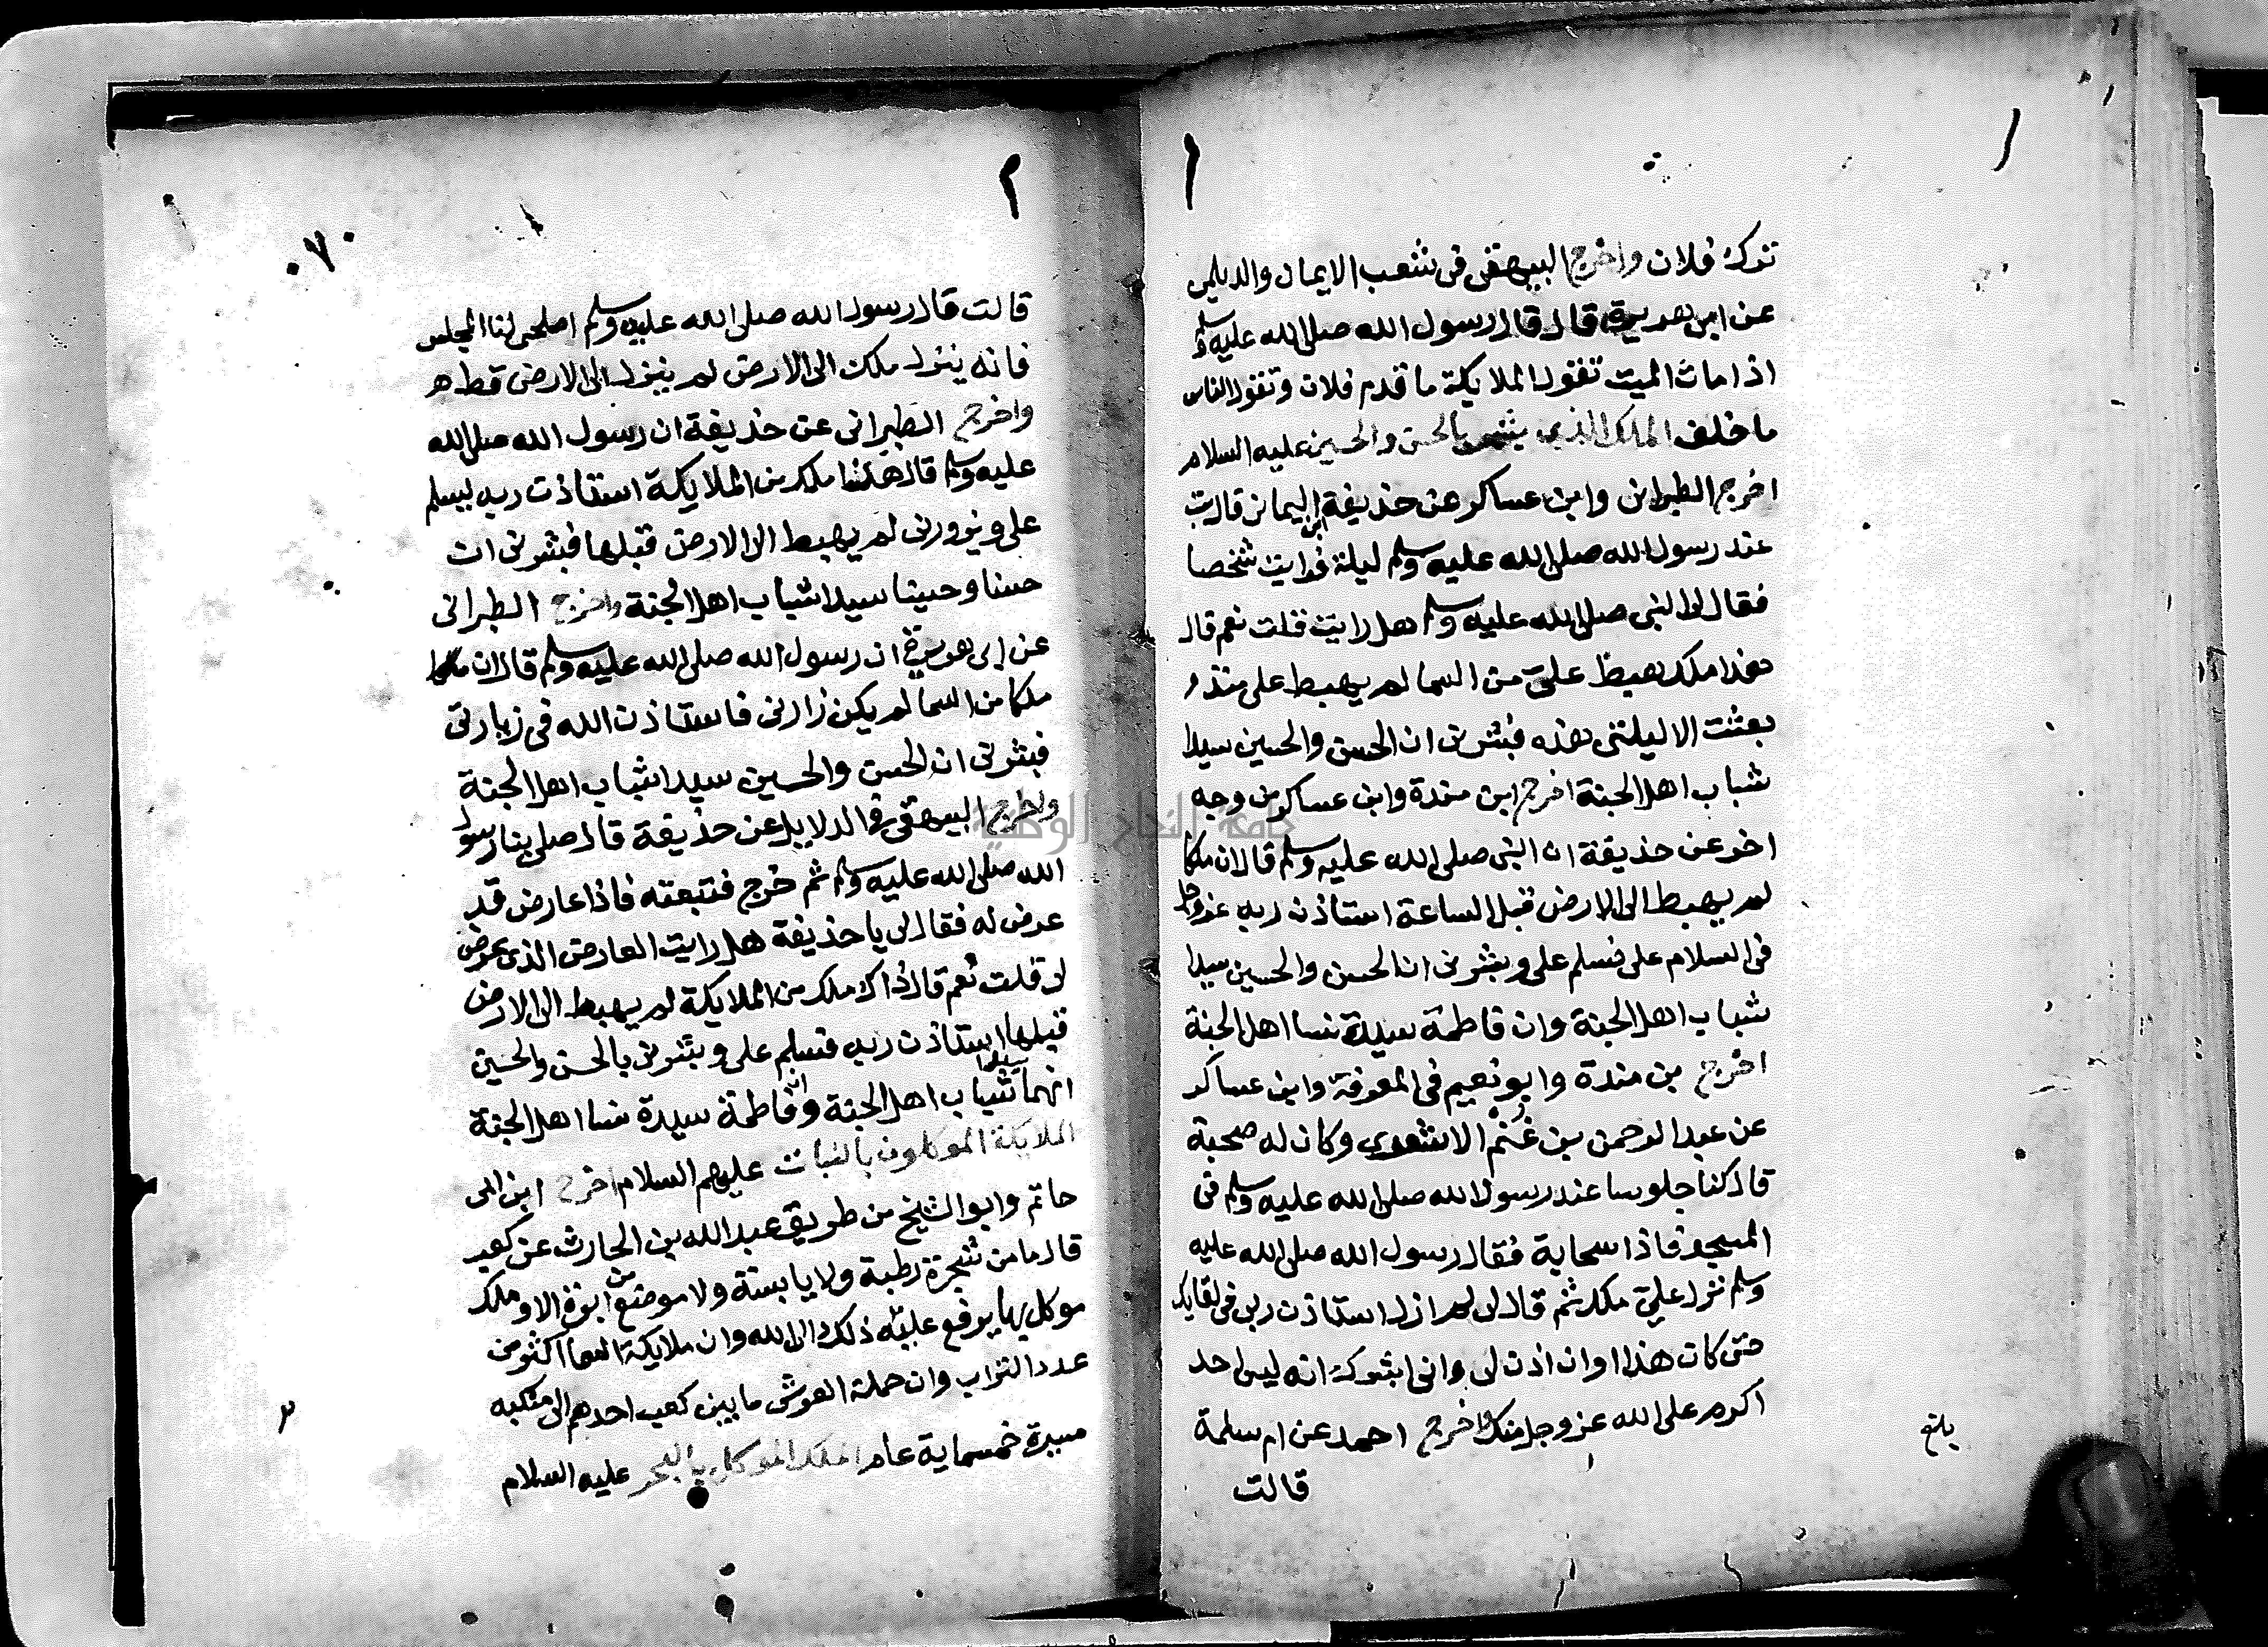 ١
ترك فلان واخرج البيهقى فى شعب الايمان والديلمى
عن ابى هريرة قال قال رسول الله صلى الله عليه وسلم
اذا مات الميت تقول الملايكة ما قدم فلان وتقول الناس
ما خلف الملك الذى يبشر بالحسن والحسين عليه السلام
اخرج الطبرانى وابن عساكر عن حذيفة ابن اليمان قال بت
عند رسول الله صلى الله عليه وسلم ليلة فرايت شخصا
فقال لى النبى صلى الله عليه وسلم هل رايت قلت نعم قال
هذا ملك هبط علىّ من السما لم يهبط على منذ
بعثت الا ليلتى هذه فبشرنى ان الحسن والحسين سيدا
شباب اهل الجنة اخرج ابن مندة وابن عساكر من وجه
اخر عن حذيفة ان النبى صلى الله عليه وسلم قال ان ملكا
لم يهبط الى الارض قبل الساعة استاذن ربه عز وجل
فى السلام على فسلم على وبشرنى ان الحسن والحسين سيدا
شباب اهل الجنة وان فاطمة سيدة نسا اهل الجنة
اخرج بن مندة وابو نعيم فى المعرفة وابن عساكر
عن عبد الرحمن بن غُنم الاشعرى وكان له صحبة
قال كنا جلوسا عند رسول الله صلى الله عليه وسلم فى
المسجد فاذا سحاية فقال رسول الله صلى الله عليه
وسلم نزل علىّ ملك ثم قال لى لم ازل استاذن ربى فى لقايك
حتى كان هذا اوان اذن لى وانى ابشرك انه ليس احد
اكرم على الله عز وجل منك واخرج احمد عن ام سلمة
قالت
بلغ
٢
٧٠
قالت قال رسول الله صلى الله عليه وسلم اصلحى لنا المجلس
فانه ينزل ملك الى الارض لم ينزل الى الارض قط
واخرج الطبرانى عن حذيفة ان رسول الله صلى الله
عليه وسلم قال هذا ملك من الملايكة استاذن ربه ليسلم
على ويزورنى لم يهبط الى الارض قبلها فبشرنى ان
حسنا وحسينا سيدا شباب اهل الجنة واخرج الطبرانى
عن ابى هريرة ان رسول الله صلى الله عليه وسلم قال ان
ملكا من السما لم يكن زارنى فاستاذن الله فى زيارتى
فبشرنى ان الحسن والحسين سيدا شباب اهل الجنة
واخرج البيهقى فى الدلايل عن حذيفة قال صلى بنا رسول
الله صلى الله عليه وسلم ثم خرج فتبعته فاذا عارض قد
عرض له فقال لى يا حذيفة هل رايت العارض الذى عرض
لى قلت نعم قال ذاك ملك من الملايكة لم يهبط الى الارض
قبلها استاذن ربه فسلم على وبشرنى بالحسن والحسين
انهما سيدا شباب اهل الجنة وان فاطمة سيدة نسا اهل الجنة
الملايكة الموكلون بالنبات عليهم السلام اخرج ابن ابى
حاتم وابو الشيخ من طريق عبد الله بن الحارث عن كعب
قال ما من شجرة رطبة ولا يابسة ولا موضع من ابرة الا وملك
موكل بها يرفع عليه ذلك الى الله وان ملايكة السما اكثر من
عدد التراب وان حملة العرش ما بين كعب احدهم الى منكبه
مسيرة خمسماية عام الملك الموكل بالبحر عليه السلام
جامعة النجاح الوطنية